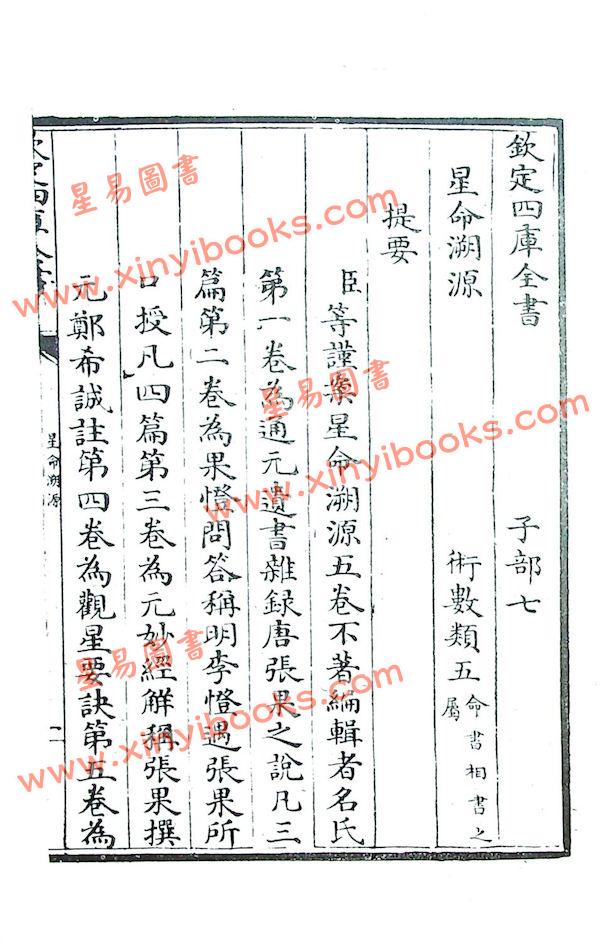 欽定四庫全書
子部七
星命溯源
術數類五命書相書之屬
提要
臣等謹案星命溯源五卷不著編輯者名氏
第一卷為通元遺書雜録唐張果之說凡三
篇第二卷為果憕問答稱明李憕遇張果所
口授凡四篇第三卷為元妙經解稱張果撰
元鄭希誠註第四卷為觀星要訣第五卷為
欽定四庫全書
星命溯源
一
星易圖書
www.xinyibooks.com
星易圖書
www.xinyibooks.com
星易圖書
www.xinyibooks.com